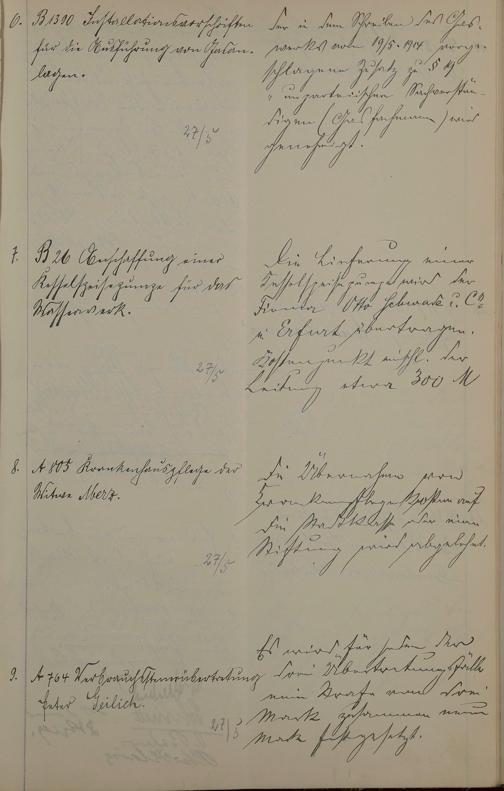 6. B 1390 Installationsvorschriften
für die Ausführung von Gasan-
lagen.
27/5
Der in dem Schreiben des Gas-
werks vom 19/5. 1914 vorge-
schlagene Zusatz zu § 19
"unparteiischen Sachverstän-
digen (Gasfachmann) wird
genehmigt.
7. B 26 Anschaffung einer
Kesselspeisepumpe für das
Wasserwerk.
27/5
Die Lieferung einer
Kesselspeisepumpe wird der
Firma Otto Schwade u. Co
in Erfurt übertragen.
Kostenpunkt einschl. der
Leitung etwa 300 M
8. A 805 Krankenhauspflege der
Witwe Merz.
27/5
Die Übernahme von
Krankenpflegekosten auf
die Stadtkasse oder eine
Stiftung wird abgelehnt.
9. A 764 Verbrauchssteuerübertretung
Peter Geilich.
27/5
Es wird für jeden der
drei Übertretungsfälle
eine Strafe von drei
Mark zusammen neun
Mark festgesetzt.